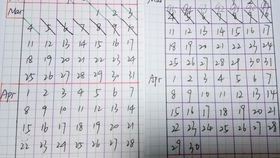 Mar
11 12 13 14 15 16 17
18 19 20 21 22 23 24
25 26 27 28 29 30 31
Apr 1 2 3 4 5 6 7
8 9 10 11 12 13 14
15 16 17 18 19 20 21
22 23 24 25 26 27 28
Mar
11 12 13 14 15 16 17
18 19 20 21 22 23 24
25 26 27 28 29 30 31
Apr 1 2 3 4 5 6 7
8 9 10 11 12 13 14
15 16 17 18 19 20 21
22 23 24 25 26 27 28
29 30